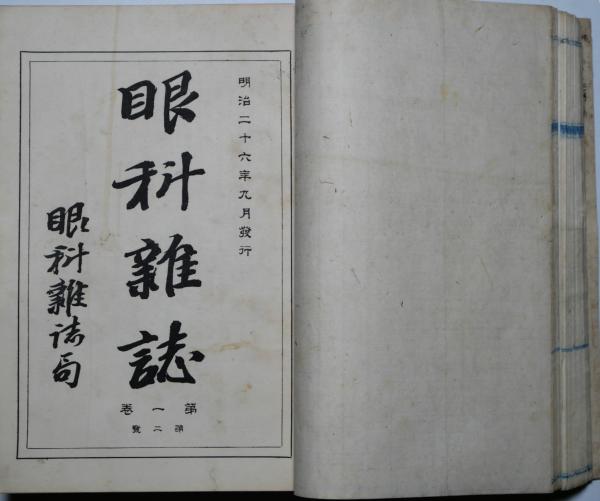 明治二十六年九月發行
眼科雜誌
第一卷
第二號
眼科雜誌局